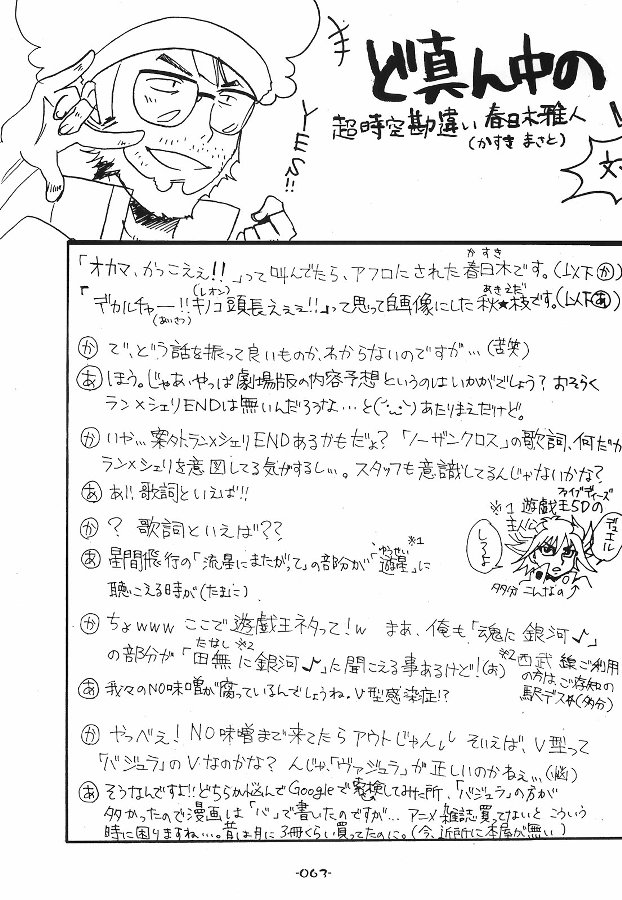 ど真ん中の
超時空勘違い 春日木雅人
(かすき まさと)
YES!!
「オカマ、かっこえぇ!!」って叫んでたら、アフロにされた春日木です。(以下か)
かすき
「デカルチャー!!キノコ頭長えぇぇ!!」って思って自画像にした秋★枝です。(以下あ)
(レオン)
あきえだ
(あいさつ)
か で、どう話を振って良いものか、わからないのですが…(苦笑)
あ ほう。じゃあ、やっぱ劇場版の内容予想というのはいかがでしょう?おそらく
ラン×シェリENDは無いんだろうな…と(´・ω・`)あたりまえだけど。
か いや…案外ラン×シェリENDあるかもだよ?「ノーザンクロス」の歌詞、何だか
ラン×シェリを意図してる気がするし…。スタッフも意識してるんじゃないかな?
あ あ!!歌詞といえば!!
か ? 歌詞といえば??
あ 星間飛行の「流星にまたがって」の部分が「遊星」に
ゆうせい
※1
聴こえる時が(たまに)
※1 遊戯王5Dの
ファイブディーズ
主人公
デュエル
しろよ
多分こんなの
か ちょwww ここで遊戯王ネタって!w まあ、俺も「魂に銀河♪」
の部分が「田無に銀河♪」に聞こえる事あるけど!(お)
たなし ※2
※2 西武線ご利用
の方はご存知の
駅デス(多分)
あ 我々のNO味噌が腐っているんでしょうね。V型感染症!?
か やっべぇ!NO味噌まで来てたらアウトじゃんしし そいえば、V型って
「バジュラ」のVなのかな?んじゃ、「ヴァジュラ」が正しいのかねぇ…(悩)
あ そうなんですよ!!どちらか悩んでGoogleで検索してみた所、「バジュラ」の方が
多かったので漫画は「バ」で書いたのですが… アニメ雑誌買ってないとこういう
時に困りますね…。昔は月に3冊くらい買ってたのに。(今、近所に本屋が無い)
-063-